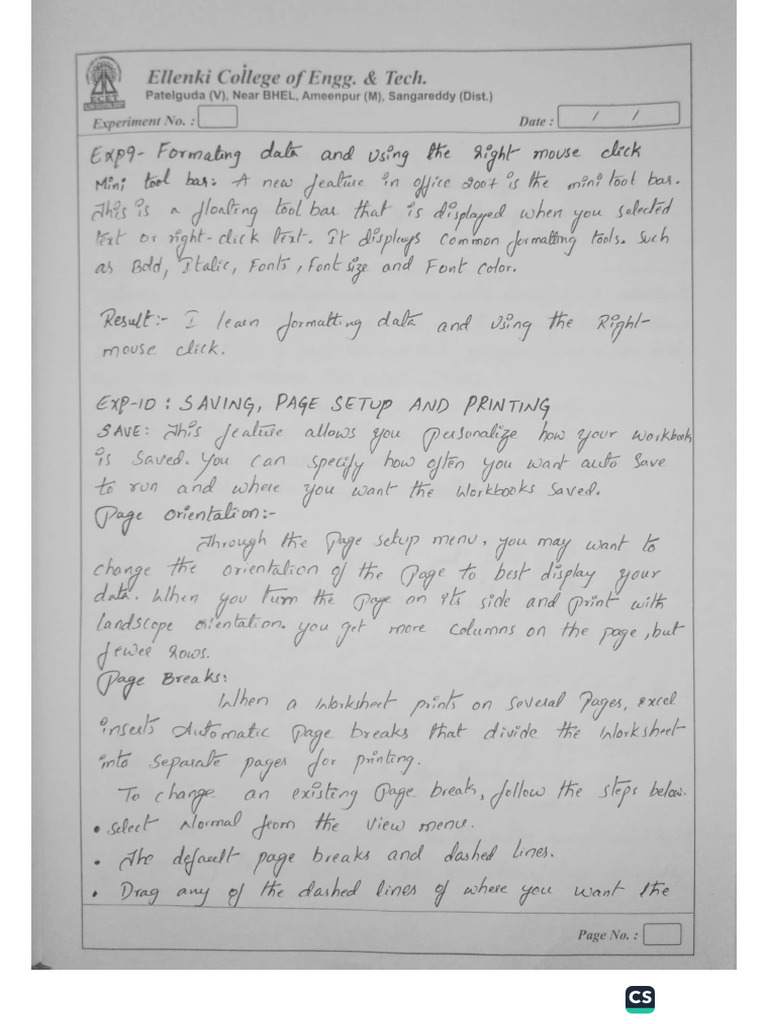 Ellenki College of Engg. & Tech.
Patelguda (V), Near BHEL, Ameenpur (M), Sangareddy (Dist.)
Experiment No. :
Date : / /
Exp9- Formating data and using the Right mouse click
Mini tool bar: A new feature in office 2007 is the mini tool bar.
This is a floating tool bar that is displayed when you selected
text or right-click text. It displays common formatting tools. Such
as Bold, Italic, Fonts, Font size and Font color.
Result:- I learn formatting data and using the Right-
mouse click.
Exp-10: SAVING, PAGE SETUP AND PRINTING
SAVE: This feature allows you personalize how your workbook
is saved. You can specify how often you want auto save
to run and where you want the Workbooks saved.
Page orientation:-
Through the Page setup menu, you may want to
change the orientation of the page to best display your
data. When you turn the page on its side and print with
landscope orientation. you get more columns on the page, but
fewer rows.
Page Breaks:
When a Worksheet prints on several Pages, excel
inserts Automatic page breaks that divide the Worksheet
into separate pages for printing.
To change an existing Page break, follow the steps below.
• select Normal from the View menu.
• The default page breaks and dashed lines.
• Drag any of the dashed lines of where you want the
Page No. :
CS